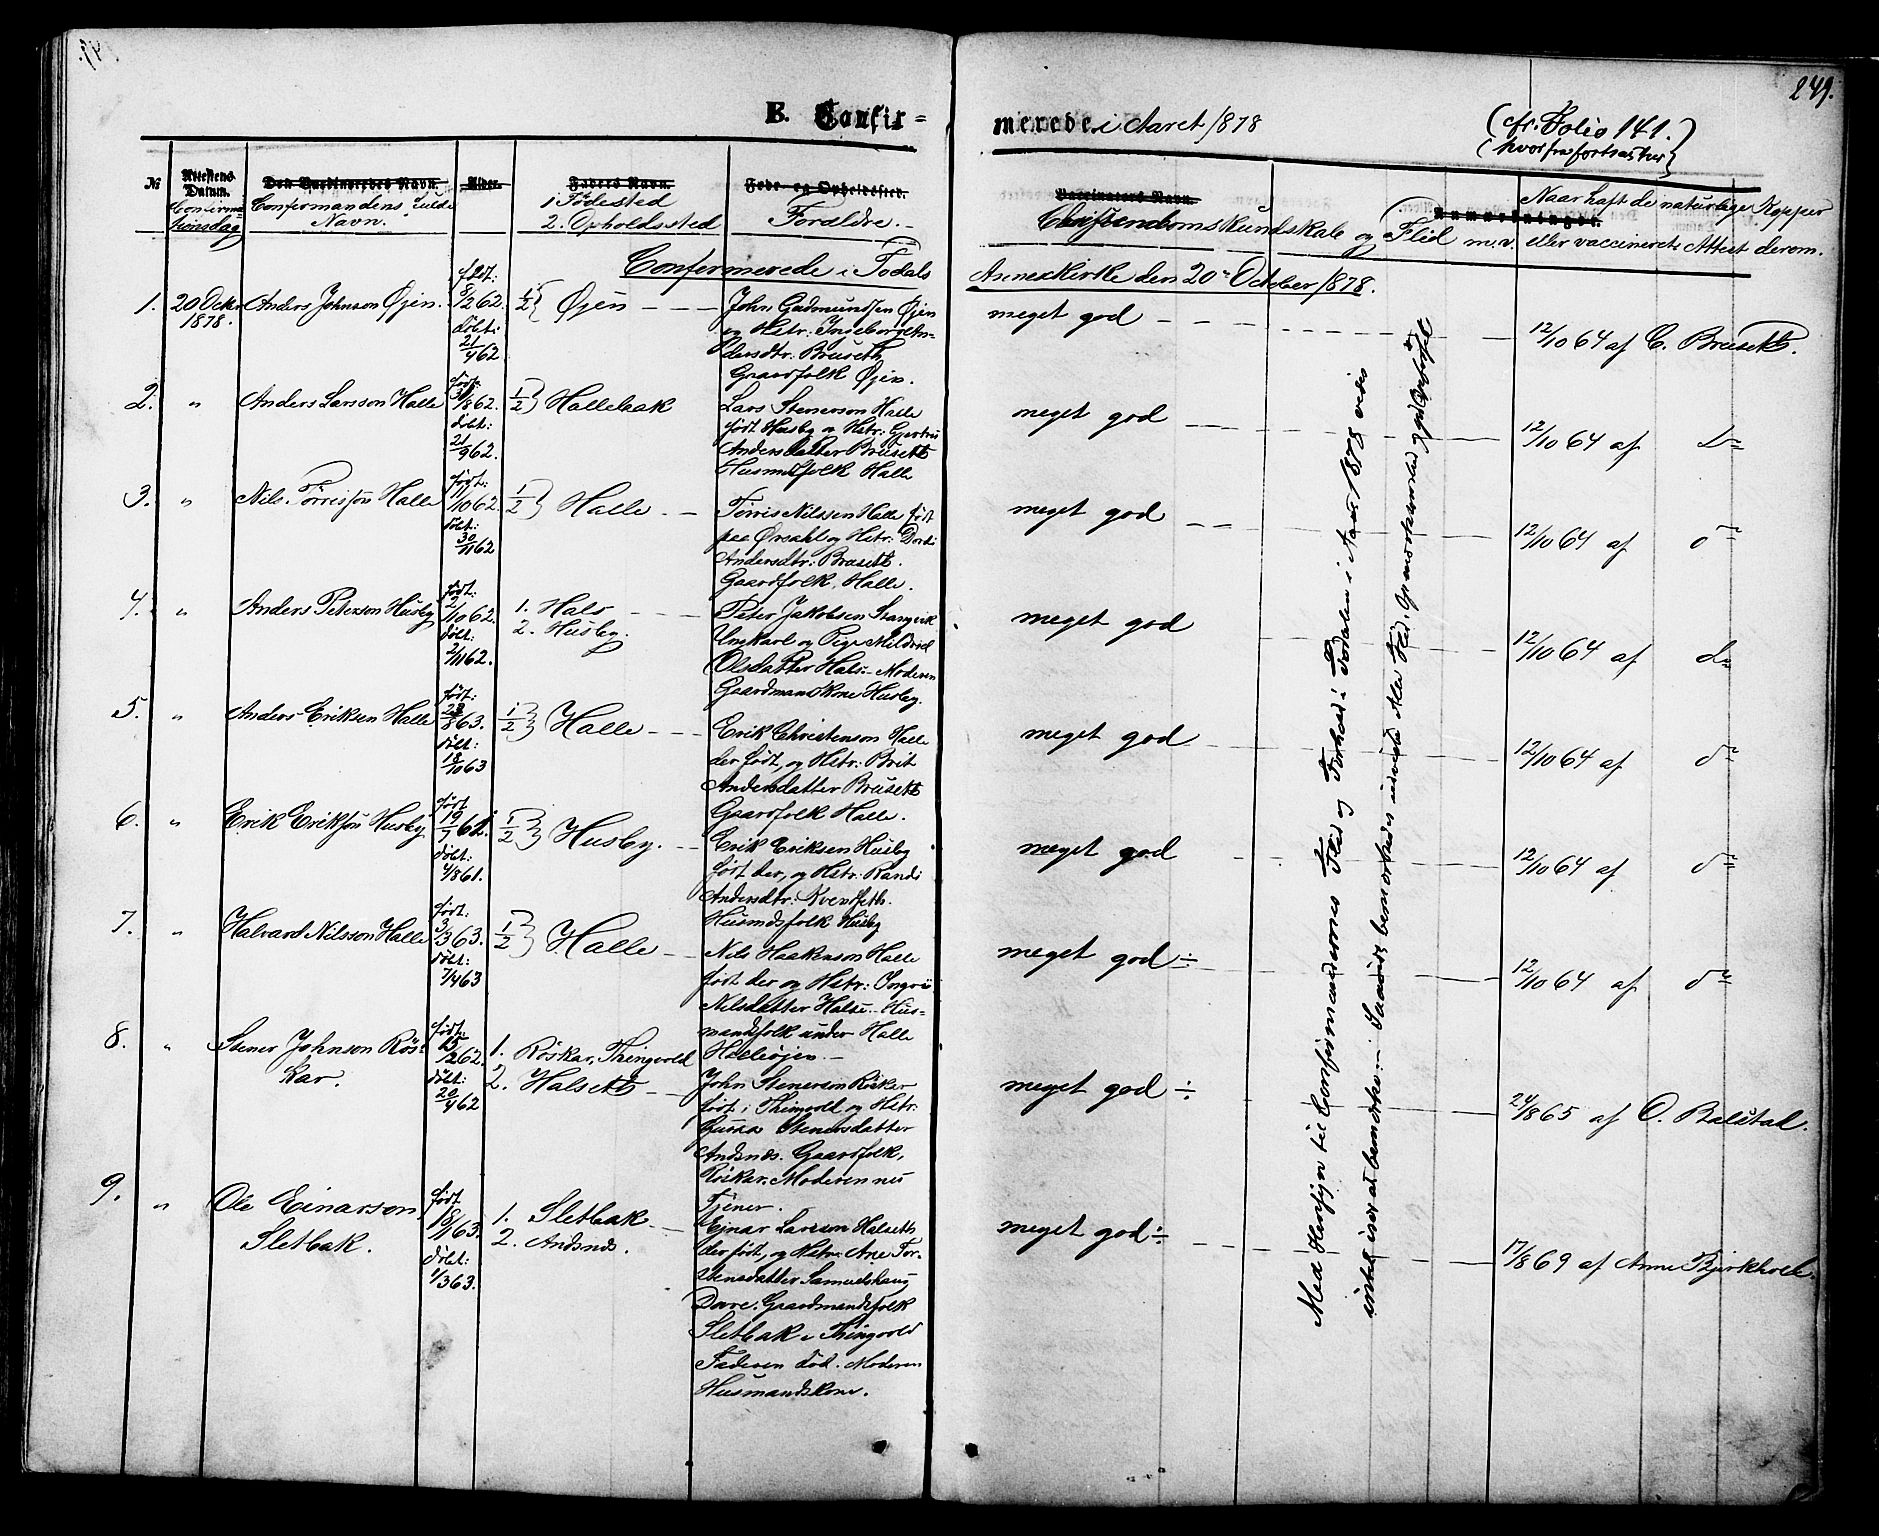 249.
B. Confirmerede i Aaret 1878
(cfr. Folio 141.)
(hvorfra fortsættes)
№
Attestens Datum.
Confirmationsdag
Den Vaccineredes Navn.
Confirmandens fulde Navn.
Alder.
Faders Navn.
1 Fødested
2. Opholdssted
Føde- og Opholdssted.
Forældre.
Vaccinators Navn.
Christendomskundskab og Flid m.v.
Anmærkninger.
Naar haft de naturlige Kopper
eller vaccinerets Attest derom.
Confirmerede i Todals Annexkirke den 20de October 1878.
1. 20 Octbr 1878. Anders Johnson Øjen.
født: 8/2 62. døbt: 21/4 62
1/2 } Øjen
John Gudmundsen Øjen
og Hstr: Ingeborg An-
dersdtr: Bruseth
Gaardfolk Øjen.
meget god
12/10 64 af C. Bruseth.
2. " Anders Larsson Halle
født: 31/8 62. døbt: 21/9 62.
1/2 } Hallebak
Lars Stenerson Halle
født Husby og Hstr: Gjertrud
Andersdatter Bruseth
Husmdsfolk Halle
meget god
12/10 64 af Do
3. " Nils Tørrisson Halle
født: 11/10 62. døbt: 30/11 62
1/2 } Halle
Tørris Nilssen Halle født
paa Ørsahl og Hstr: Dordi
Andersdtr: Bruseth.
Gaardfolk, Halle.
meget god
12/10 64 af do
4. " Anders Peterson Husby
født: 2/10 62. døbt: 2/11 62.
1. Hals
2. Husby.
Peter Jakobsen Stangvik
Ungkarl og Pige Mildrid
Olsdatter Hals. Moderen
Gaardmandskone Husby.
meget god
12/10 64 af do
5. " Anders Eriksen Halle
født: 28/8 63. døbt: 18/10 63
1/2 } Halle
Erik Christenson Halle
der født, og Hstr: Brit
Andersdatter Bruseth
Gaardfolk Halle.
meget god
12/10 64 af do
6. " Erik Eriksson Husby.
født 19/7 61. døbt: 4/8 61.
1/2 } Husby.
Erik Eriksen Husby
født der, og Hstr: Randi
Andersdtr: Kvendseth.
Husmdsfolk Husby
meget god
12/10 64 af do
7. " Halvard Nilsson Halle
født: 3/3 63. døbt: 7/4 63
1/2 } Halle
Nils Haakenson Halle
født der og Hstr: Ingrid
Nilsdatter Halse. Hus-
mandsfolk under Halle
Halleøjen.
meget god ÷
12/10 64 af do
8. " Stener Johnson Røskar.
født: 15/2 62. døbt: 20/4 62
1. Røskar, Thingvold
2. Halseth
John Stenerson Røskar
født i Thingvold og Hstr.
Guraa Stenersdatter
Andsnæs. Gaardfolk,
Røskar. Moderen nu
Tjener.
meget god ÷
24/8 65 af O. Bølstal.
9. " Ole Einarson Sletbak.
født 18/1 63. døbt: 1/3 63.
1. Sletbak
2. Andsnæs.
Ejnar Larsson Halseth
der født, og Hstr: Ane Tor-
stensdatter Samuelshaug
Dovre. Gaardmandsfolk
Sletbak i Thingvold
Faderen død. Moderen
Husmandskone.
meget god ÷
17/8 69 af Anne Bjørkholt.
Med Hensyn til Confirmandernes Flid og Forhold i Todalen i Aaret 1878 vides
intet især at bemærke.